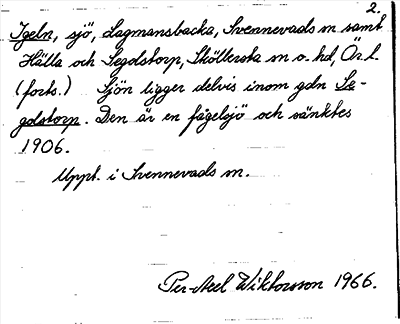 2.
Igeln, sjö, Lagmansbacka, Svennevads sn samt
Hälla och Segdstorp, Sköllersta sn o. hd, Ör. l.
(forts.) Sjön ligger delvis inom gdn Se-
gdstorp. Den är en fågelsjö och sänktes
1906.
Uppt. i Svennevads sn.
Per-Axel Wiktorsson 1966.